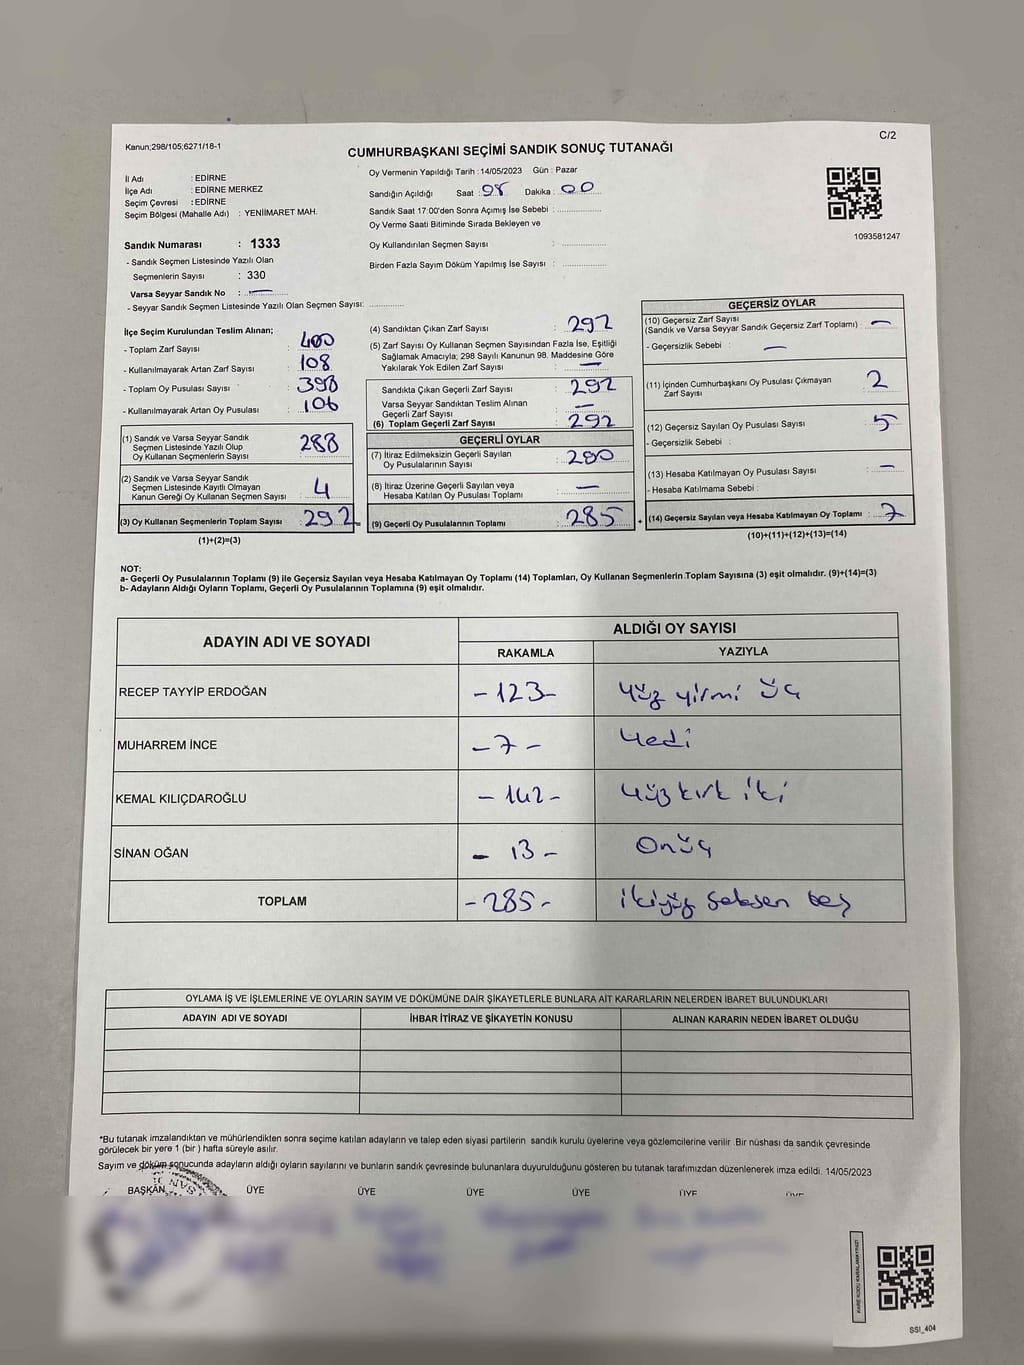 Kanun;298/105;6271/18-1
C/2
CUMHURBAŞKANI SEÇİMİ SANDIK SONUÇ TUTANAĞI
İl Adı : EDİRNE
İlçe Adı : EDİRNE MERKEZ
Seçim Çevresi : EDİRNE
Seçim Bölgesi (Mahalle Adı) : YENİİMARET MAH.
Sandık Numarası : 1333
- Sandık Seçmen Listesinde Yazılı Olan
Seçmenlerin Sayısı : 330
Varsa Seyyar Sandık No : —
- Seyyar Sandık Seçmen Listesinde Yazılı Olan Seçmen Sayısı: ............
Oy Vermenin Yapıldığı Tarih : 14/05/2023 Gün : Pazar
Sandığın Açıldığı Saat : 08 Dakika : 00
Sandık Saat 17:00'den Sonra Açımış İse Sebebi : ...............
Oy Verme Saati Bitiminde Sırada Bekleyen ve
Oy Kullandırılan Seçmen Sayısı : ...............
Birden Fazla Sayım Döküm Yapılmış İse Sayısı : ...............
1093581247
İlçe Seçim Kurulundan Teslim Alınan;
- Toplam Zarf Sayısı : 400
- Kullanılmayarak Artan Zarf Sayısı : 108
- Toplam Oy Pusulası Sayısı : 398
- Kullanılmayarak Artan Oy Pusulası : 106
(1) Sandık ve Varsa Seyyar Sandık
Seçmen Listesinde Yazılı Olup
Oy Kullanan Seçmenlerin Sayısı : 288
(2) Sandık ve Varsa Seyyar Sandık
Seçmen Listesinde Kayıtlı Olmayan
Kanun Gereği Oy Kullanan Seçmen Sayısı : 4
(3) Oy Kullanan Seçmenlerin Toplam Sayısı : 292
(1)+(2)=(3)
(4) Sandıktan Çıkan Zarf Sayısı : 292
(5) Zarf Sayısı Oy Kullanan Seçmen Sayısından Fazla İse, Eşitliği
Sağlamak Amacıyla; 298 Sayılı Kanunun 98. Maddesine Göre
Yakılarak Yok Edilen Zarf Sayısı : —
Sandıkta Çıkan Geçerli Zarf Sayısı : 292
Varsa Seyyar Sandıktan Teslim Alınan
Geçerli Zarf Sayısı : —
(6) Toplam Geçerli Zarf Sayısı : 292
GEÇERLİ OYLAR
(7) İtiraz Edilmeksizin Geçerli Sayılan
Oy Pusulalarının Sayısı : 280
(8) İtiraz Üzerine Geçerli Sayılan veya
Hesaba Katılan Oy Pusulası Toplamı : —
(9) Geçerli Oy Pusulalarının Toplamı : 285
GEÇERSİZ OYLAR
(10) Geçersiz Zarf Sayısı
(Sandık ve Varsa Seyyar Sandık Geçersiz Zarf Toplamı) : —
- Geçersizlik Sebebi : —
(11) İçinden Cumhurbaşkanı Oy Pusulası Çıkmayan
Zarf Sayısı : 2
(12) Geçersiz Sayılan Oy Pusulası Sayısı : 5
- Geçersizlik Sebebi :
(13) Hesaba Katılmayan Oy Pusulası Sayısı : —
- Hesaba Katılmama Sebebi :
+ (14) Geçersiz Sayılan veya Hesaba Katılmayan Oy Toplamı : 7
(10)+(11)+(12)+(13)=(14)
NOT:
a- Geçerli Oy Pusulalarının Toplamı (9) ile Geçersiz Sayılan veya Hesaba Katılmayan Oy Toplamı (14) Toplamları, Oy Kullanan Seçmenlerin Toplam Sayısına (3) eşit olmalıdır. (9)+(14)=(3)
b- Adayların Aldığı Oyların Toplamı, Geçerli Oy Pusulalarının Toplamına (9) eşit olmalıdır.
ADAYIN ADI VE SOYADI
ALDIĞI OY SAYISI
RAKAMLA YAZIYLA
RECEP TAYYİP ERDOĞAN -123- Yüz yirmi üç
MUHARREM İNCE -7- Yedi
KEMAL KILIÇDAROĞLU -142- Yüz kırk iki
SİNAN OĞAN - 13 - Onüç
TOPLAM -285- ikiyüz seksen beş
OYLAMA İŞ VE İŞLEMLERİNE VE OYLARIN SAYIM VE DÖKÜMÜNE DAİR ŞİKAYETLERLE BUNLARA AİT KARARLARIN NELERDEN İBARET BULUNDUKLARI
ADAYIN ADI VE SOYADI İHBAR İTİRAZ VE ŞİKAYETİN KONUSU ALINAN KARARIN NEDEN İBARET OLDUĞU
*Bu tutanak imzalandıktan ve mühürlendikten sonra seçime katılan adayların ve talep eden siyasi partilerin sandık kurulu üyelerine veya gözlemcilerine verilir .Bir nüshası da sandık çevresinde
görülecek bir yere 1 (bir ) hafta süreyle asılır.
Sayım ve döküm sonucunda adayların aldığı oyların sayılarını ve bunların sandık çevresinde bulunanlara duyurulduğunu gösteren bu tutanak tarafımızdan düzenlenerek imza edildi. 14/05/2023
BAŞKAN ÜYE ÜYE ÜYE ÜYE ÜYE ÜYE
SSI_404